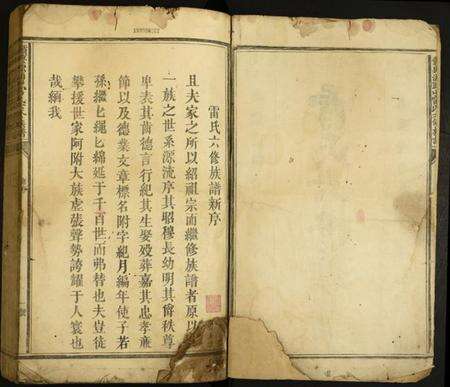 雷氏六修族譜新序
且夫家之所以紹祖宗而繼修族譜者原以
一族之世系源流序其昭穆長幼明其爵秩尊
卑表其齒德言行紀其生娶歿葬嘉其忠孝亷
節以及德業文章標名附字紀月編年使子若
孫繼匕繩匕綿延于千百世而弗替也夫豈徒
攀援世家阿附大族虛張聲勢誇耀于人寰也
哉緬我